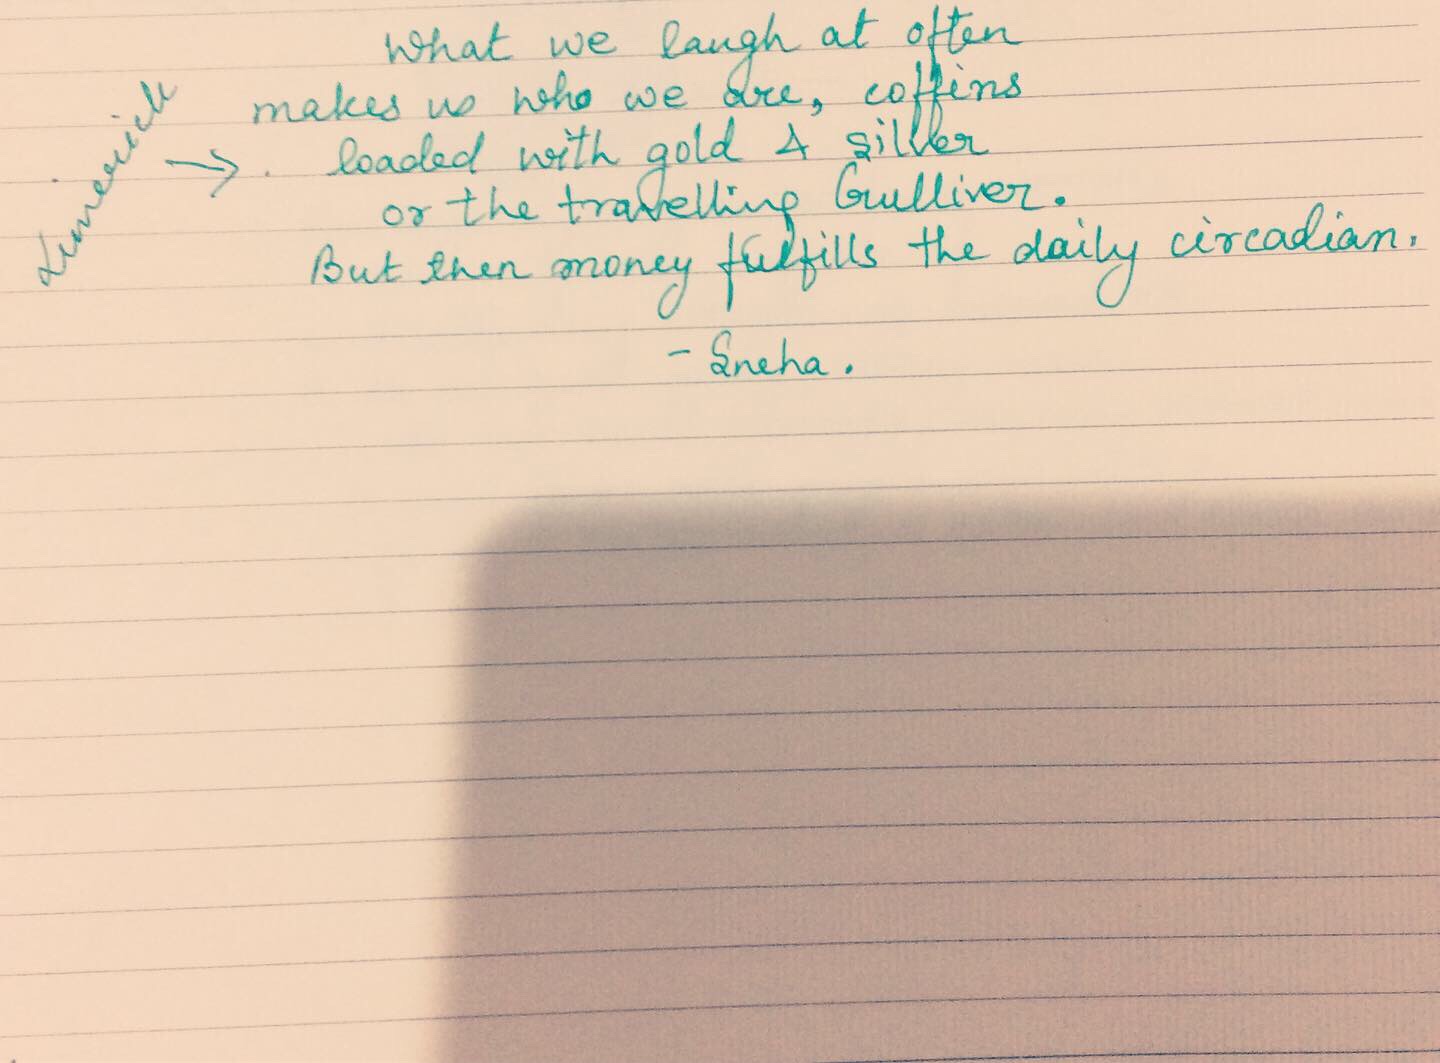 What we laugh at often
makes us who we are, coffins
Limerick → . loaded with gold & silver
or the travelling Gulliver.
But then money fulfills the daily circadian.
- Sneha.